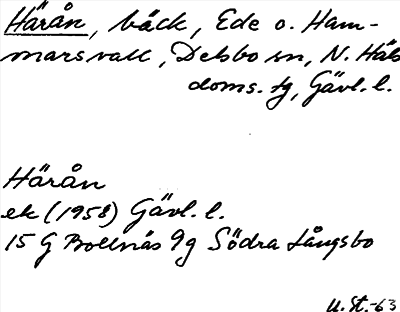 Härån, bäck, Ede o. Ham-
marsvall, Delsbo sn, N. Häls
doms. tg, Gävl. l.
Härån
ek (1958) Gävl. l.
15 G Bollnäs 9g Södra Långsbo
U. St. -63